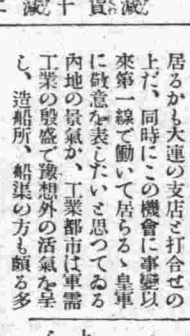 減資十減
居るかも大連の支店と打合せの
上だ、同時にこの機會に事變以
來第一線で働いて居らるゝ皇軍
に敬意を表したいと思つてゐる
內地の景氣か、工業都市は軍需
工業の殷盛で豫想外の活氣を呈
し、造船所、船渠の方も頗る多